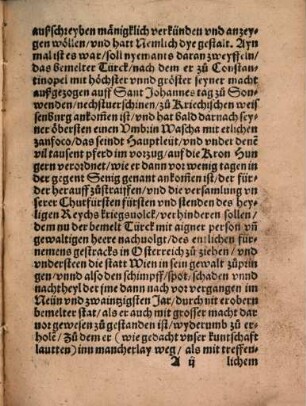 auffschreyben mänigklich verkünden vnd anzey-
gen wöllen/vnd hatt Nemlich dye gestalt. Ayn
mal ist es war/soll nyemants daran zweyffeln/
das bemelter Türck/nach dem er zů Constan-
tinopel mit höchster vnnd gröster seyner macht
auffgezogen auff Sant Johannes tag zů Son-
wenden/nechstuerschinen/zů Kriechischen weis-
senburg ankom̃en ist/vnd hat bald darnach sey-
ner öbersten einen Vmbrin Wascha mit etlichen
zanfoco/das seindt Hauptleut/vnd vnder denẽ
vil tausent pferd im vorzug/auff die Kron Hun
gern verordnet/wie er dann vor wenig tagen in
der gegent Sonig genant ankom̃en ist/der für-
der herauff zůstraiffen/vnd die versamlung vn
serer Chutfürsten fürsten vnd stenden des hey-
ligen Reychs kriegsuolck/verhinderen sollen/
dem nu der bemelt Türck mit aigner person vñ
gewaltigen heere nachuolgt/des entlichen für-
nemens gestracks in Osterreich zů ziehen/vnd
vndersteen die statt Wien in sein gewalt zůprin
gen/vnnd also den schimpff/spot/schaden vnnd
nachtheyl der jme dann nach vor vergangen im
Neün vnd zwainzigsten Jar/durch nit erobern
bemelter stat/als er auch mit grosser macht dar
vor gewesen zů gestanden ist/wyderumb zů er-
holẽ/ Zů dem er (wie gedacht vnser kuntschafft
lautten) inn mancherlay weg/als mit treffen-
A ij lichem